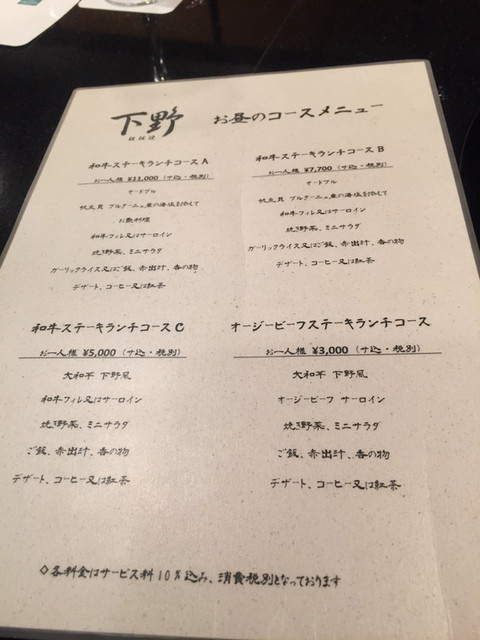 下野
鉄板焼
お昼のコースメニュー
和牛ステーキランチコース A
お一人様 ¥11,000 (サ込・税別)
オードブル
帆立貝 ブルターニュ産の海塩を添えて
お魚料理
和牛フィレ又はサーロイン
焼き野菜、ミニサラダ
ガーリックライス又はご飯、赤出汁、香の物
デザート、コーヒー又は紅茶
和牛ステーキランチコース B
お一人様 ¥7,700 (サ込・税別)
オードブル
帆立貝 ブルターニュ産の海塩を添えて
和牛フィレ又はサーロイン
焼き野菜、ミニサラダ
ガーリックライス又はご飯、赤出汁、香の物
デザート、コーヒー又は紅茶
和牛ステーキランチコース C
お一人様 ¥5,000 (サ込・税別)
大和芋 下野風
和牛フィレ又はサーロイン
焼き野菜、ミニサラダ
ご飯、赤出汁、香の物
デザート、コーヒー又は紅茶
オージービーフステーキランチコース
お一人様 ¥3,000 (サ込・税別)
大和芋 下野風
オージービーフ サーロイン
焼き野菜、ミニサラダ
ご飯、赤出汁、香の物
デザート、コーヒー又は紅茶
◇各料金はサービス料10%込み、消費税別となっております